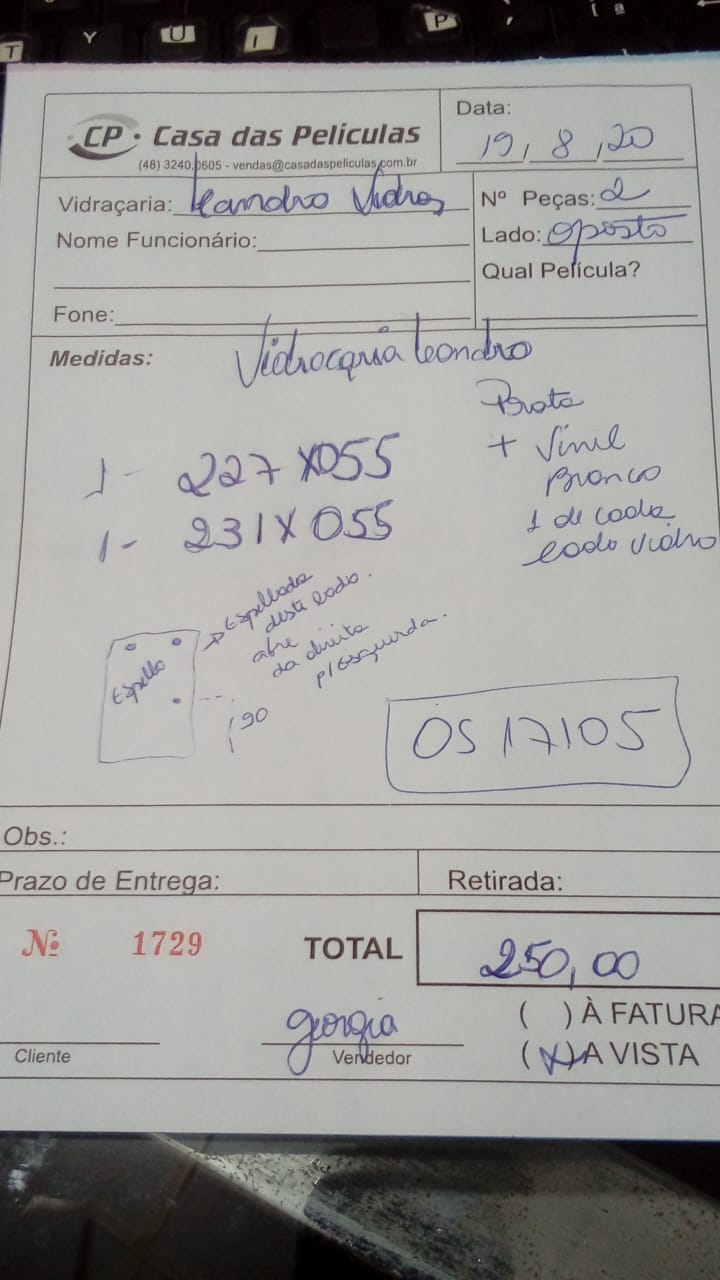 T Y U I P
CP • Casa das Películas
(48) 3240.0605 - vendas@casadaspeliculas.com.br
Data: 19, 8, 20
Vidraçaria: Leandro Vidros
Nº Peças: 2
Nome Funcionário:
Lado: oposto
Qual Película?
Fone:
Medidas: Vidraçaria Leandro
Prata
+ Vinil
Branco
1 de cada
lado vidro
1 - 227 X 055
1 - 231 X 055
Espellada
deste lado.
abre
da direita
p/ Esquerda.
Espelho
90
OS 17105
Obs.:
Prazo de Entrega:
Retirada:
Nº 1729
TOTAL 250,00
( ) À FATURA
(X) A VISTA
georgia
Cliente
Vendedor